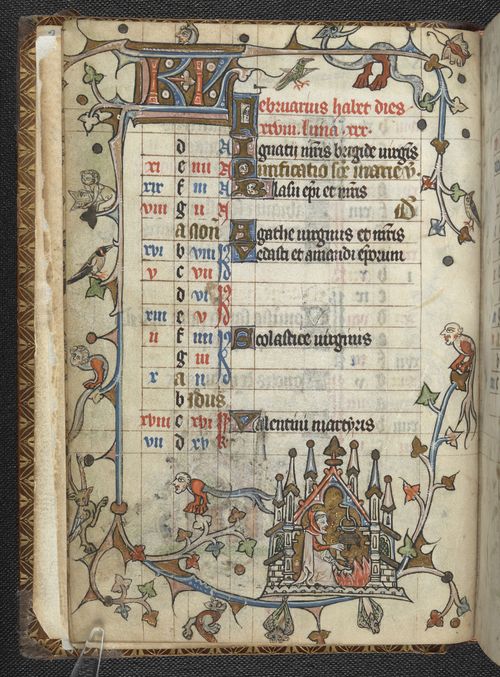 KL
Februarius habet dies
xxviii. luna xxx.
d A Ignatii mris brigide virgis
xi e iiii N Purificatio sce marie v.
xix f iii N Blasii epi et mris
viii g ii N
a non Agathe virginis et mris
xvi b viii Vedasti et amandi eporum
v c vii
d vi
xiii e v
ii f iiii Scolastice virginis
g iii
x a ii
b idus
xviii c xvi Valentini martyris
vii d xv k